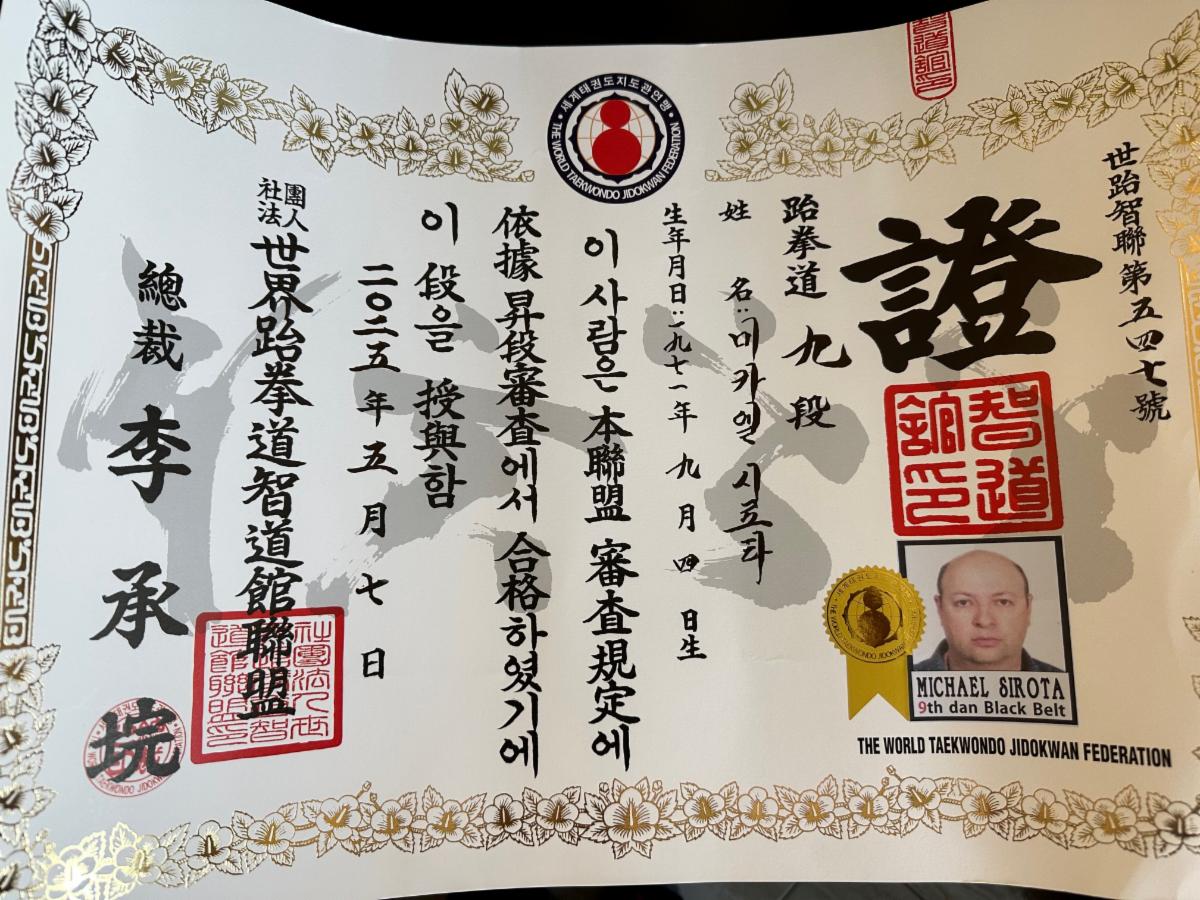 世跆智聯第五四七號
證
智道館印
跆拳道 九段
姓 名: 미카엘 시로타
生年月日: 一九七一年 九月 四日生
이 사람은 本聯盟 審査規定에
依據 昇段審査에서 合格하였기에
이 段을 授與함
二〇二五年 五月 七日
社團法人 世界跆拳道智道館聯盟
總裁 李承垸
세계태권도지도관연맹
THE WORLD TAEKWONDO JIDOKWAN FEDERATION
MICHAEL SIROTA
9th dan Black Belt
THE WORLD TAEKWONDO JIDOKWAN FEDERATION